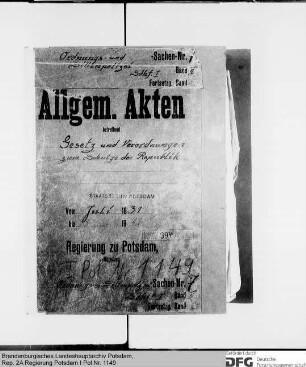 Ordnungs- und -Sachen-Nr. 1
Sdbf. I Band
Fortsetzg. Band
Allgem. Akten
betreffend
Gesetz und Verordnungen
zum Schutze der Republik
STAATSARCHIV POTSDAM
Vom Juli 1931
bis 19
Regierung zu Potsdam,
I Pol Nr. 1149
-Sachen-Nr. 1
Band
Fortsetzg. Band
Brandenburgisches Landeshauptarchiv Potsdam,
Rep. 2A Regierung Potsdam I Pol Nr. 1149
Gefördert durch
DFG Deutsche
Forschungsgemeinschaft